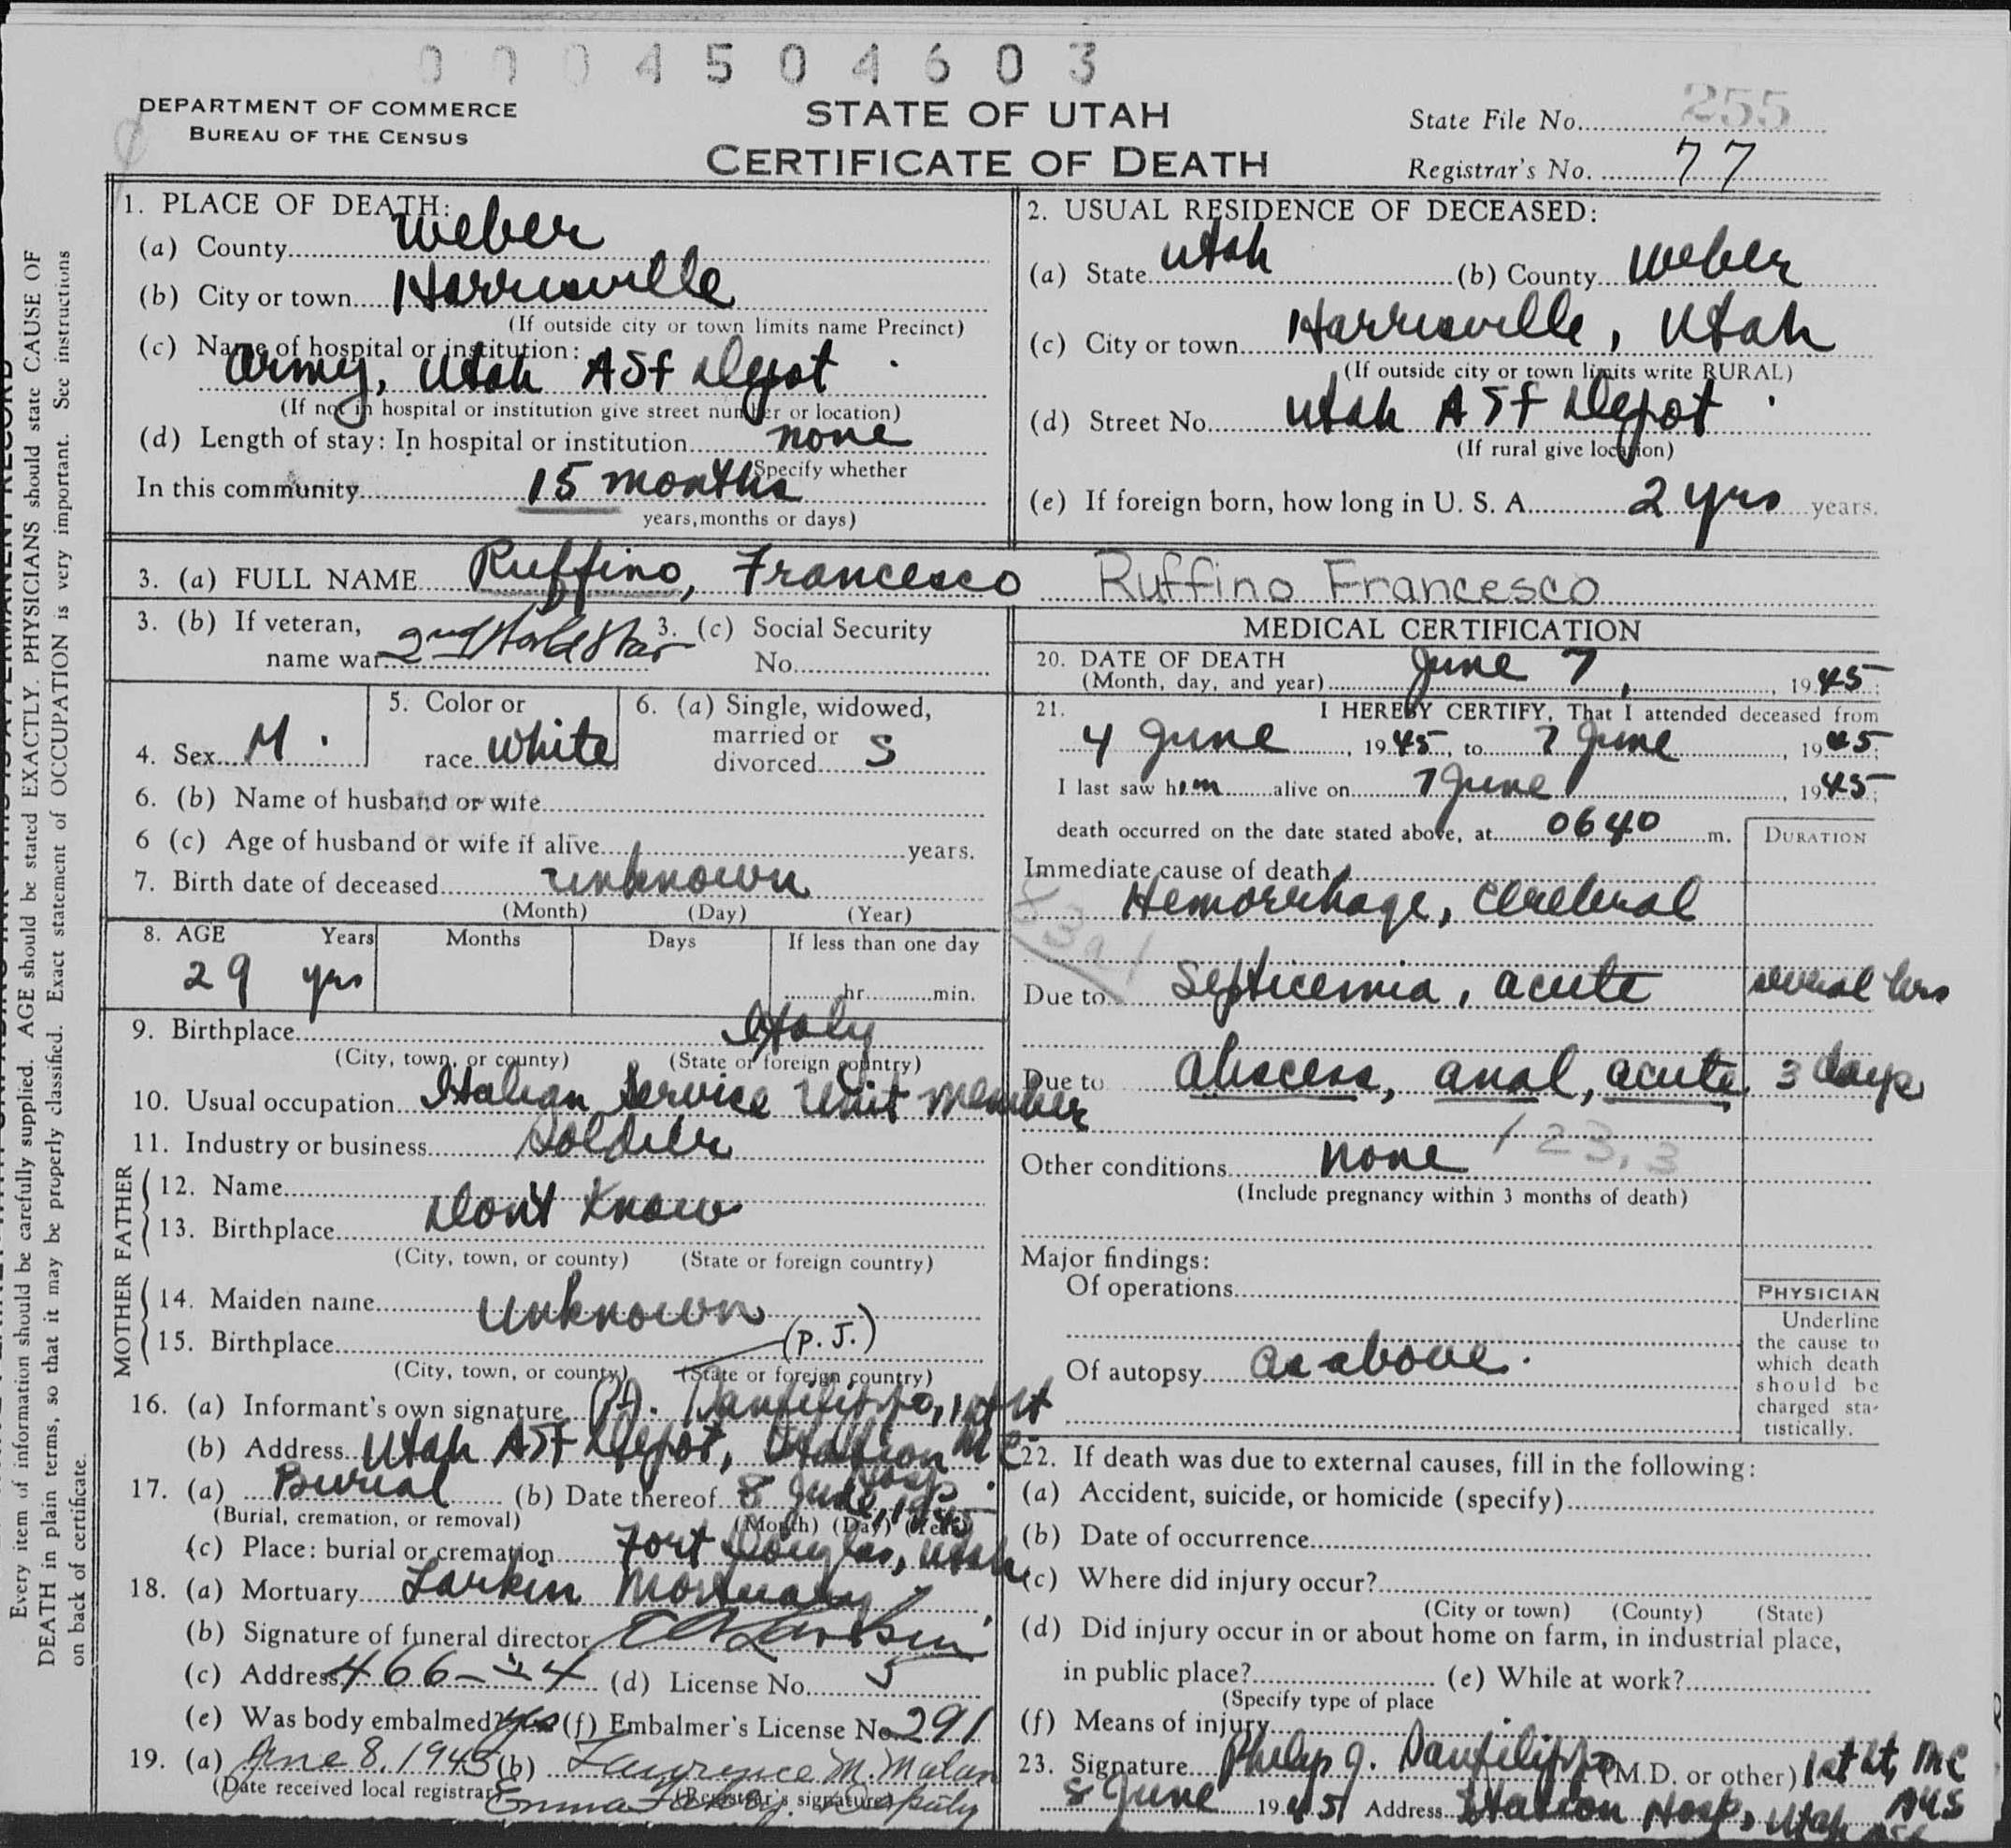 0004504603
DEPARTMENT OF COMMERCE
BUREAU OF THE CENSUS
STATE OF UTAH
CERTIFICATE OF DEATH
State File No. 255
Registrar's No. 77
1. PLACE OF DEATH:
(a) County Weber
(b) City or town Harrisville
(If outside city or town limits name Precinct)
(c) Name of hospital or institution:
Army, Utah ASF Depot
(If not in hospital or institution give street number or location)
(d) Length of stay: In hospital or institution none
Specify whether
In this community 15 months
years, months or days)
2. USUAL RESIDENCE OF DECEASED:
(a) State Utah (b) County Weber
(c) City or town Harrisville, Utah
(If outside city or town limits write RURAL)
(d) Street No. Utah ASF Depot
(If rural give location)
(e) If foreign born, how long in U. S. A. 2 yrs years.
3. (a) FULL NAME Ruffino, Francesco Ruffino Francesco
3. (b) If veteran, name war 2nd World War
3. (c) Social Security No.
4. Sex M.
5. Color or race White
6. (a) Single, widowed, married or divorced S
6. (b) Name of husband or wife
6 (c) Age of husband or wife if alive years.
7. Birth date of deceased unknown
(Month) (Day) (Year)
8. AGE Years Months Days If less than one day
29 yrs hr. min.
9. Birthplace Italy
(City, town, or county) (State or foreign country)
10. Usual occupation Italian Service Unit Member
11. Industry or business Soldier
FATHER
12. Name
Don't Know
13. Birthplace
(City, town, or county) (State or foreign country)
MOTHER
14. Maiden name unknown
15. Birthplace (P. J.)
(City, town, or county) (State or foreign country)
16. (a) Informant's own signature P.J. Danfilippo, 1st Lt
(b) Address Utah ASF Depot, Station Hosp. MC
17. (a) Burial (b) Date thereof 8 June, 1945
(Burial, cremation, or removal) (Month) (Day) (Year)
(c) Place: burial or cremation Fort Douglas, Utah
18. (a) Mortuary Larkin Mortuary
(b) Signature of funeral director Larkin
(c) Address 466-24 (d) License No. 5
(e) Was body embalmed? Yes (f) Embalmer's License No. 291
19. (a) June 8, 1945 (b) Lawrence M. Malan
(Date received local registrar) (Registrar's signature)
Emma Deputy
MEDICAL CERTIFICATION
20. DATE OF DEATH
(Month, day, and year) June 7, 1945
21. I HEREBY CERTIFY, That I attended deceased from
4 June, 1945, to 7 June, 1945;
I last saw him alive on 7 June, 1945;
death occurred on the date stated above, at 0640 m.
DURATION
Immediate cause of death
Hemorrhage, cerebral
83a1
Due to Septicemia, acute several hrs
Due to abscess, anal, acute 3 days
123.3
Other conditions none
(Include pregnancy within 3 months of death)
Major findings:
Of operations
Of autopsy as above.
PHYSICIAN
Underline
the cause to
which death
should be
charged sta-
tistically.
22. If death was due to external causes, fill in the following:
(a) Accident, suicide, or homicide (specify)
(b) Date of occurrence
(c) Where did injury occur?
(City or town) (County) (State)
(d) Did injury occur in or about home on farm, in industrial place,
in public place? (e) While at work?
(Specify type of place
(f) Means of injury
23. Signature Philip J. Danfilippo (M.D. or other) 1st Lt, MC
8 June 1945 Address Station Hosp, Utah AUS
Every item of information should be carefully supplied. AGE should be stated EXACTLY. PHYSICIANS should state CAUSE OF
DEATH in plain terms, so that it may be properly classified. Exact statement of OCCUPATION is very important. See instructions
on back of certificate.